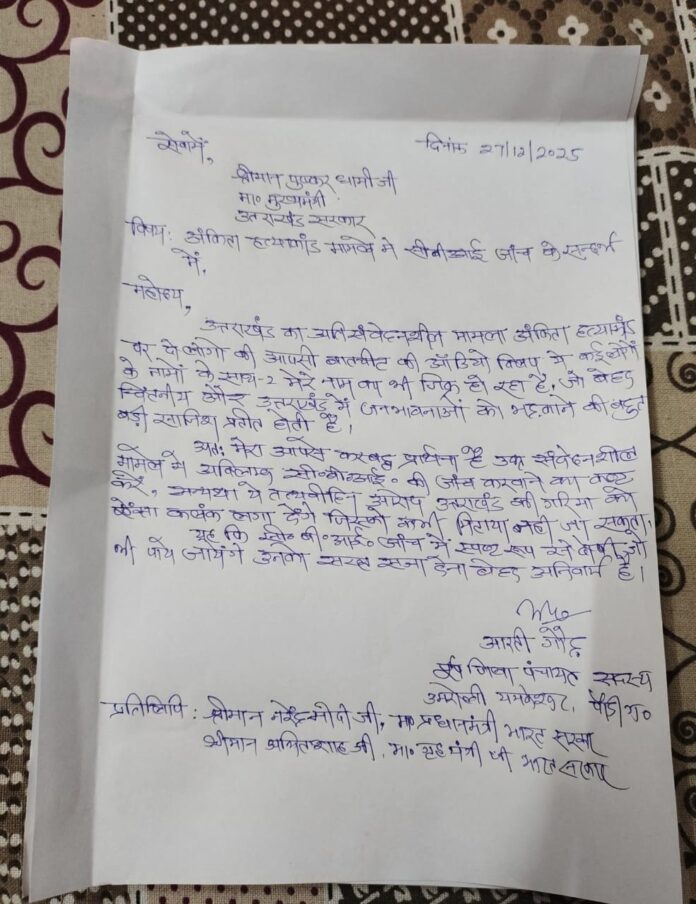 सेवामें,
दिनांक 27/12/2025
श्रीमान पुष्कर धामी जी
मा० मुख्यमंत्री
उत्तराखंड सरकार
विषय: अंकिता हत्याकांड मामले में सीबीआई जांच के सन्दर्भ
में,
महोदय,
उत्तराखंड का अतिसंवेदनशील मामला अंकिता हत्याकांड
पर दो लोगों की आपसी बातचीत की ऑडियो क्लिप में कई लोगों
के नामों के साथ-2 मेरे नाम का भी जिक्र हो रहा है, जो बेहद
चिंतनीय और उत्तराखंड में जनभावनाओं को भड़काने की बहुत
बड़ी साजिश प्रतीत होती है।
अतः मेरा आपसे करबद्ध प्रार्थना है उक्त संवेदनशील
मामले में अविलम्ब सी०बी०आई० की जांच करवाने का कष्ट
करें, अन्यथा ये तथ्यविहीन आरोप उत्तराखंड की गरिमा को
ऐसा कलंक लगा देंगे जिसको कभी मिटाया नहीं जा सकता।
यह कि सी०बी०आई० जांच में स्पष्ट रूप से दोषी जो
भी पाये जायेंगे उनको सख्त सजा देना बेहद अनिवार्य है।
आरती गौड़
पूर्व जिला पंचायत सदस्य
यमकेश्वर, पौड़ी ग०
प्रतिलिपि: श्रीमान नरेन्द्र मोदी जी, मा० प्रधानमंत्री भारत सरकार
श्रीमान अमित शाह जी, मा० गृह मंत्री जी भारत सरकार